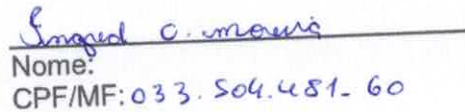 Ingred C. Moura
Nome:
CPF/MF: 033.504.481-60